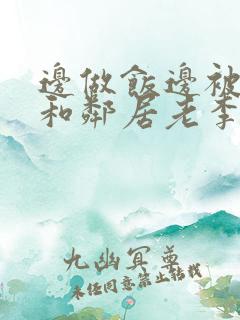 邊做飯邊被
和鄰居老李
九幽冥尊
未经同意禁止转载